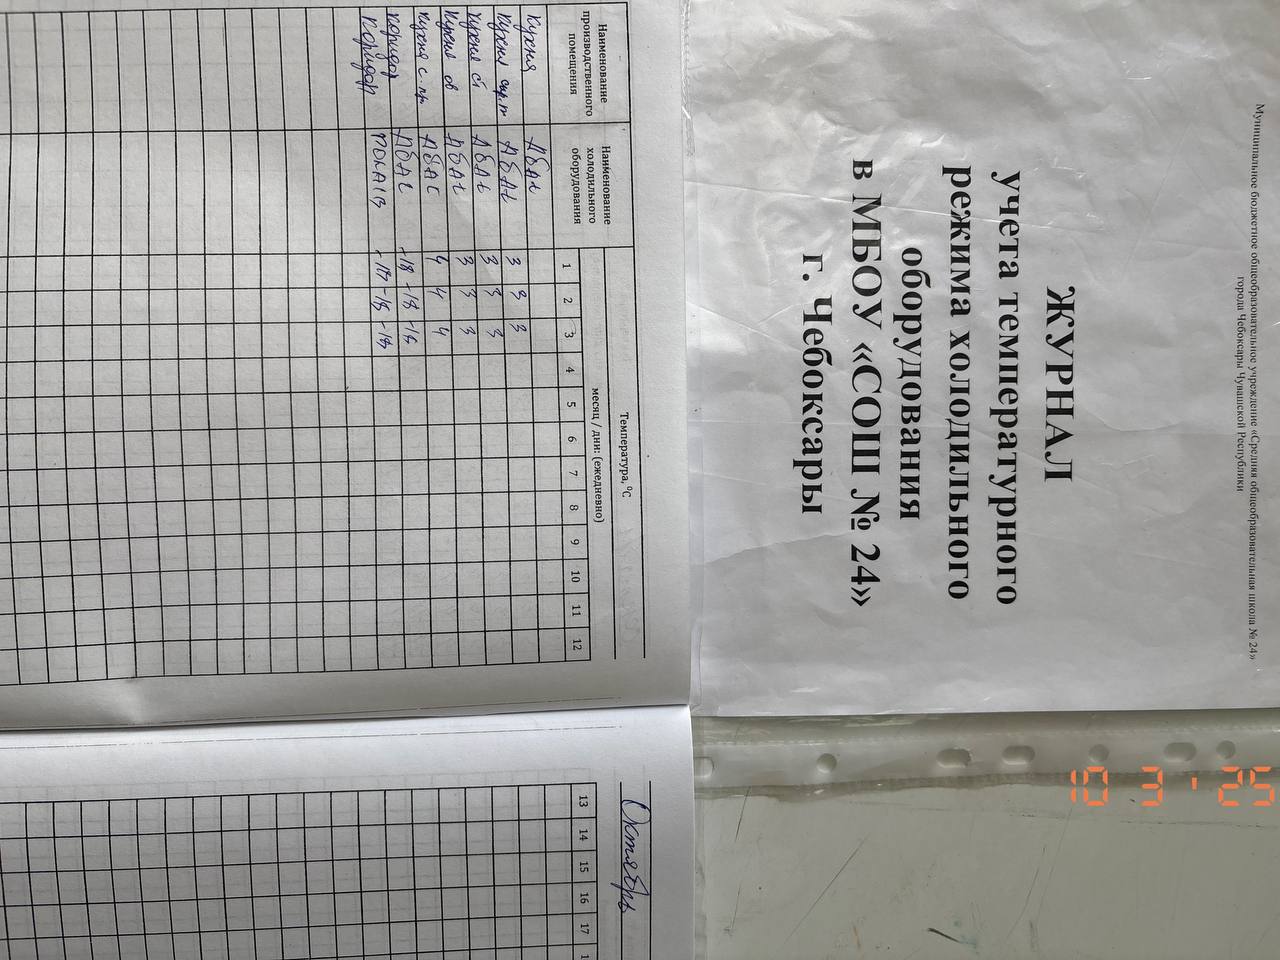 Муниципальное бюджетное общеобразовательное учреждение «Средняя общеобразовательная школа № 24»
города Чебоксары Чувашской Республики
ЖУРНАЛ
учета температурного
режима холодильного
оборудования
в МБОУ «СОШ № 24»
г. Чебоксары
10 3 ' 25
Октябрь
Температура, ⁰С
месяц / дни: (ежедневно)
Наименование производственного помещения
Наименование холодильного оборудования
1 2 3 4 5 6 7 8 9 10 11 12
13 14 15 16 17
кухня Абат 3 3 3
кухня Абат 3 3 3
кухня Абат 3 3 3
кухня ов Абат 4 4 4
кухня с. пр Абат -18 -18 -18
коридор Абат
коридор